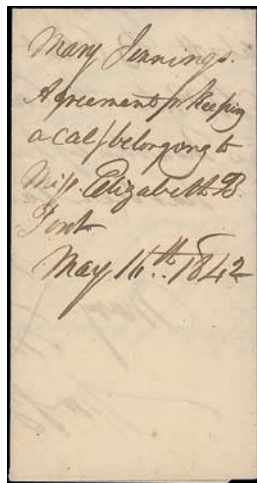 Mary Jennings.
Agreement for keeping
a calf belonging to
Miss. Elizabeth B.
May 16th. 1842